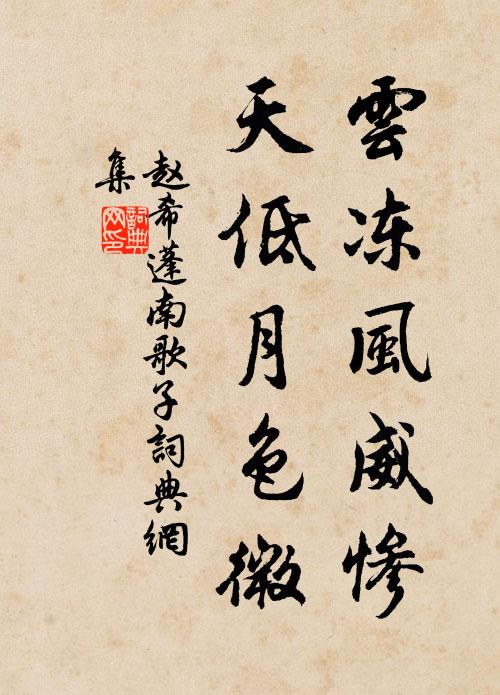 雲冻風威惨
天低月色微
赵希蓬南歌子詞典網
集
詞典
网印